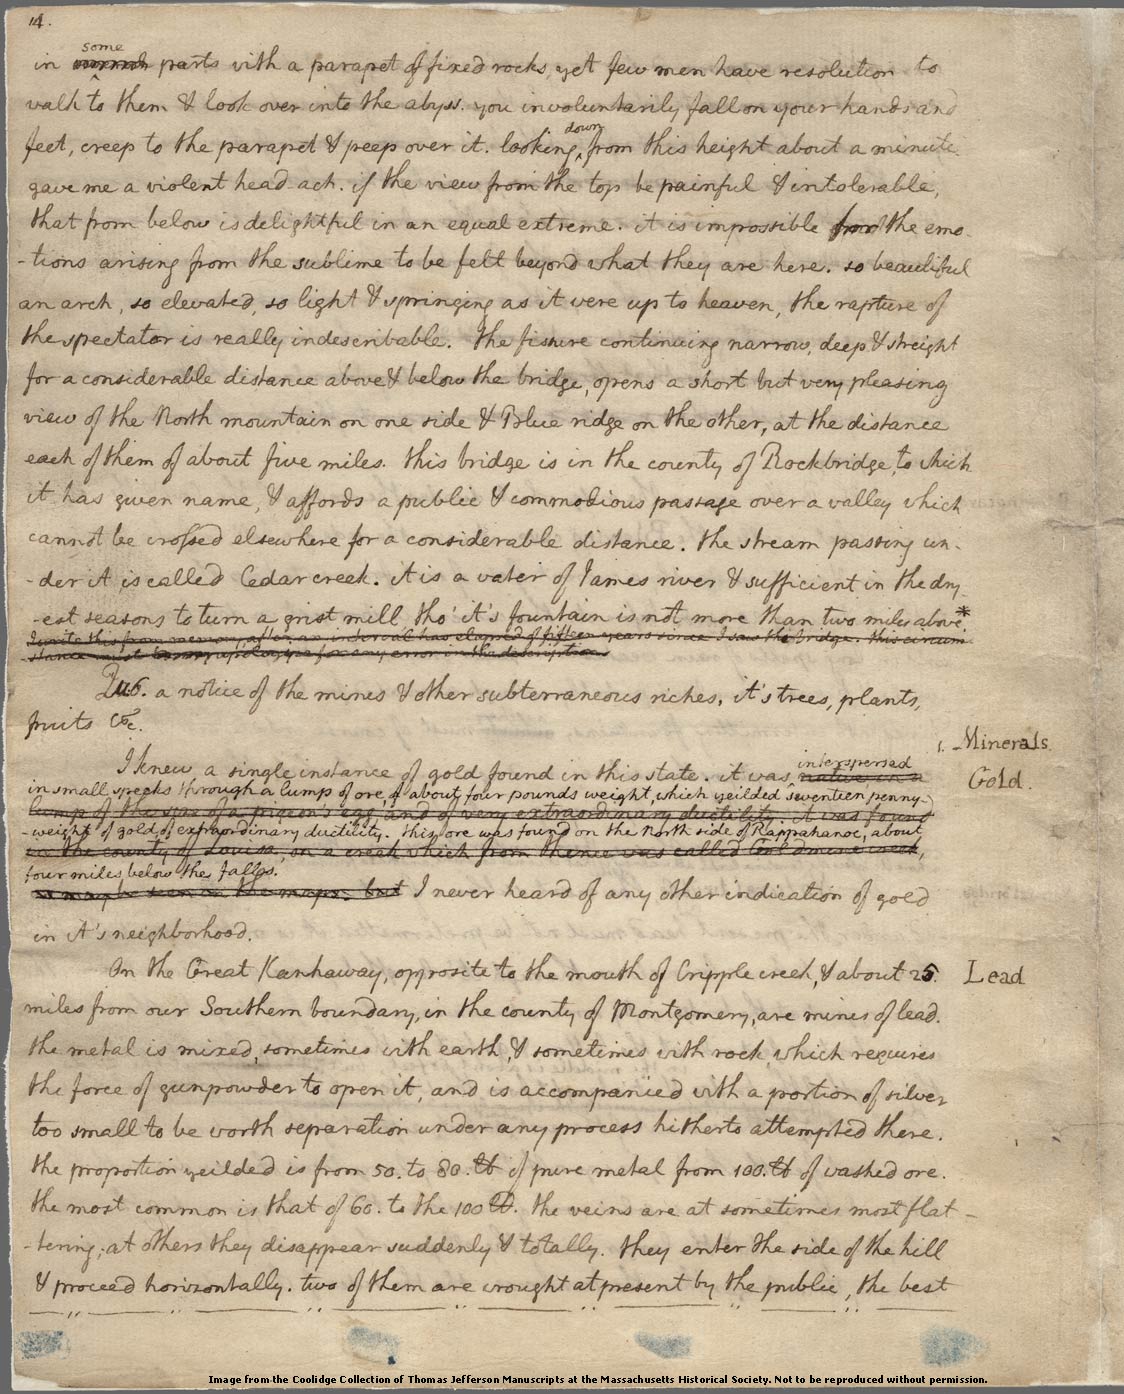 14.
some
in parts with a parapet of fixed rocks, yet few men have resolution to
walk to them & look over into the abyss. you involuntarily fall on your hands and
down
feet, creep to the parapet & peep over it. looking ‸ from this height about a minute
gave me a violent head ach. if the view from the top be painful & intolerable,
that from below is delightful in an equal extreme. it is impossible for the emo-
-tions arising from the sublime to be felt beyond what they are here. so beautiful
an arch, so elevated, so light & springing as it were up to heaven, the rapture of
the spectator is really indescribable. the fissure continuing narrow, deep & streight
for a considerable distance above & below the bridge, opens a short but very pleasing
view of the North mountain on one side & Blue ridge on the other, at the distance
each of them of about five miles. this bridge is in the county of Rockbridge, to which
it has given name, & affords a public & commodious passage over a valley which
cannot be crossed elsewhere for a considerable distance. the stream passing un-
-der it is called Cedar creek. it is a water of James river & sufficient in the dry-
-est seasons to turn a grist mill, tho' it's fountain is not more than two miles above.*
I write this from memory, after an interval has elapsed of fifteen years since I saw the bridge. this circum
stance must be my apology for any error in the description
Qu. 6. a notice of the mines & other subterraneous riches, it's trees, plants,
fruits &c.
1. Minerals
I knew a single instance of gold found in this state. it was interspersed
native in a
Gold.
in small specks through a lump of ore, of about four pounds weight, which yeilded seventeen penny-
lump of the size of a pigeon's egg, and of very extraordinary ductility. it was found
-weight of gold, of extraordinary ductility. this ore was found on the North side of Rappahanoc, about
in the county of Louisa, on a creek which from thence was called Goldmine creek,
four miles below the falls.
as may be seen in the maps. but I never heard of any other indication of gold
in it's neighborhood.
On the Great Kanhaway, opposite to the mouth of Cripple creek, & about 25.
Lead
miles from our Southern boundary, in the county of Montgomery, are mines of lead.
the metal is mixed, sometimes with earth, & sometimes with rock, which requires
the force of gunpowder to open it, and is accompanied with a portion of silver
too small to be worth separation under any process hitherto attempted there.
the proportion yeilded is from 50. to 80. lb of pure metal from 100. lb of washed ore.
the most common is that of 60. to the 100 lb. the veins are at sometimes most flat-
-tering; at others they disappear suddenly & totally. they enter the side of the hill
& proceed horizontally. two of them are wrought at present by the public, the best
Image from the Coolidge Collection of Thomas Jefferson Manuscripts at the Massachusetts Historical Society. Not to be reproduced without permission.